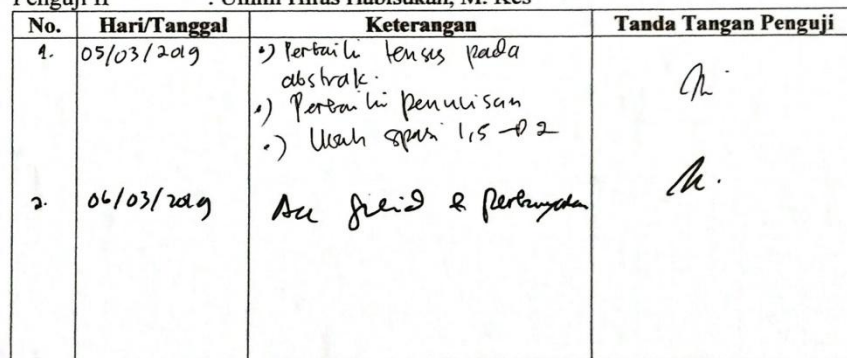 Penguji II : Ummi Hiras Habisukan, M. Kes
No. Hari/Tanggal Keterangan Tanda Tangan Penguji
1. 05/03/2019 •) Perbaiki tensis pada
abstrak.
•) Perbaiki penulisan
•) Ubah spasi 1,5 → 2
2. 06/03/2019 Acc jilid & perbanyakan